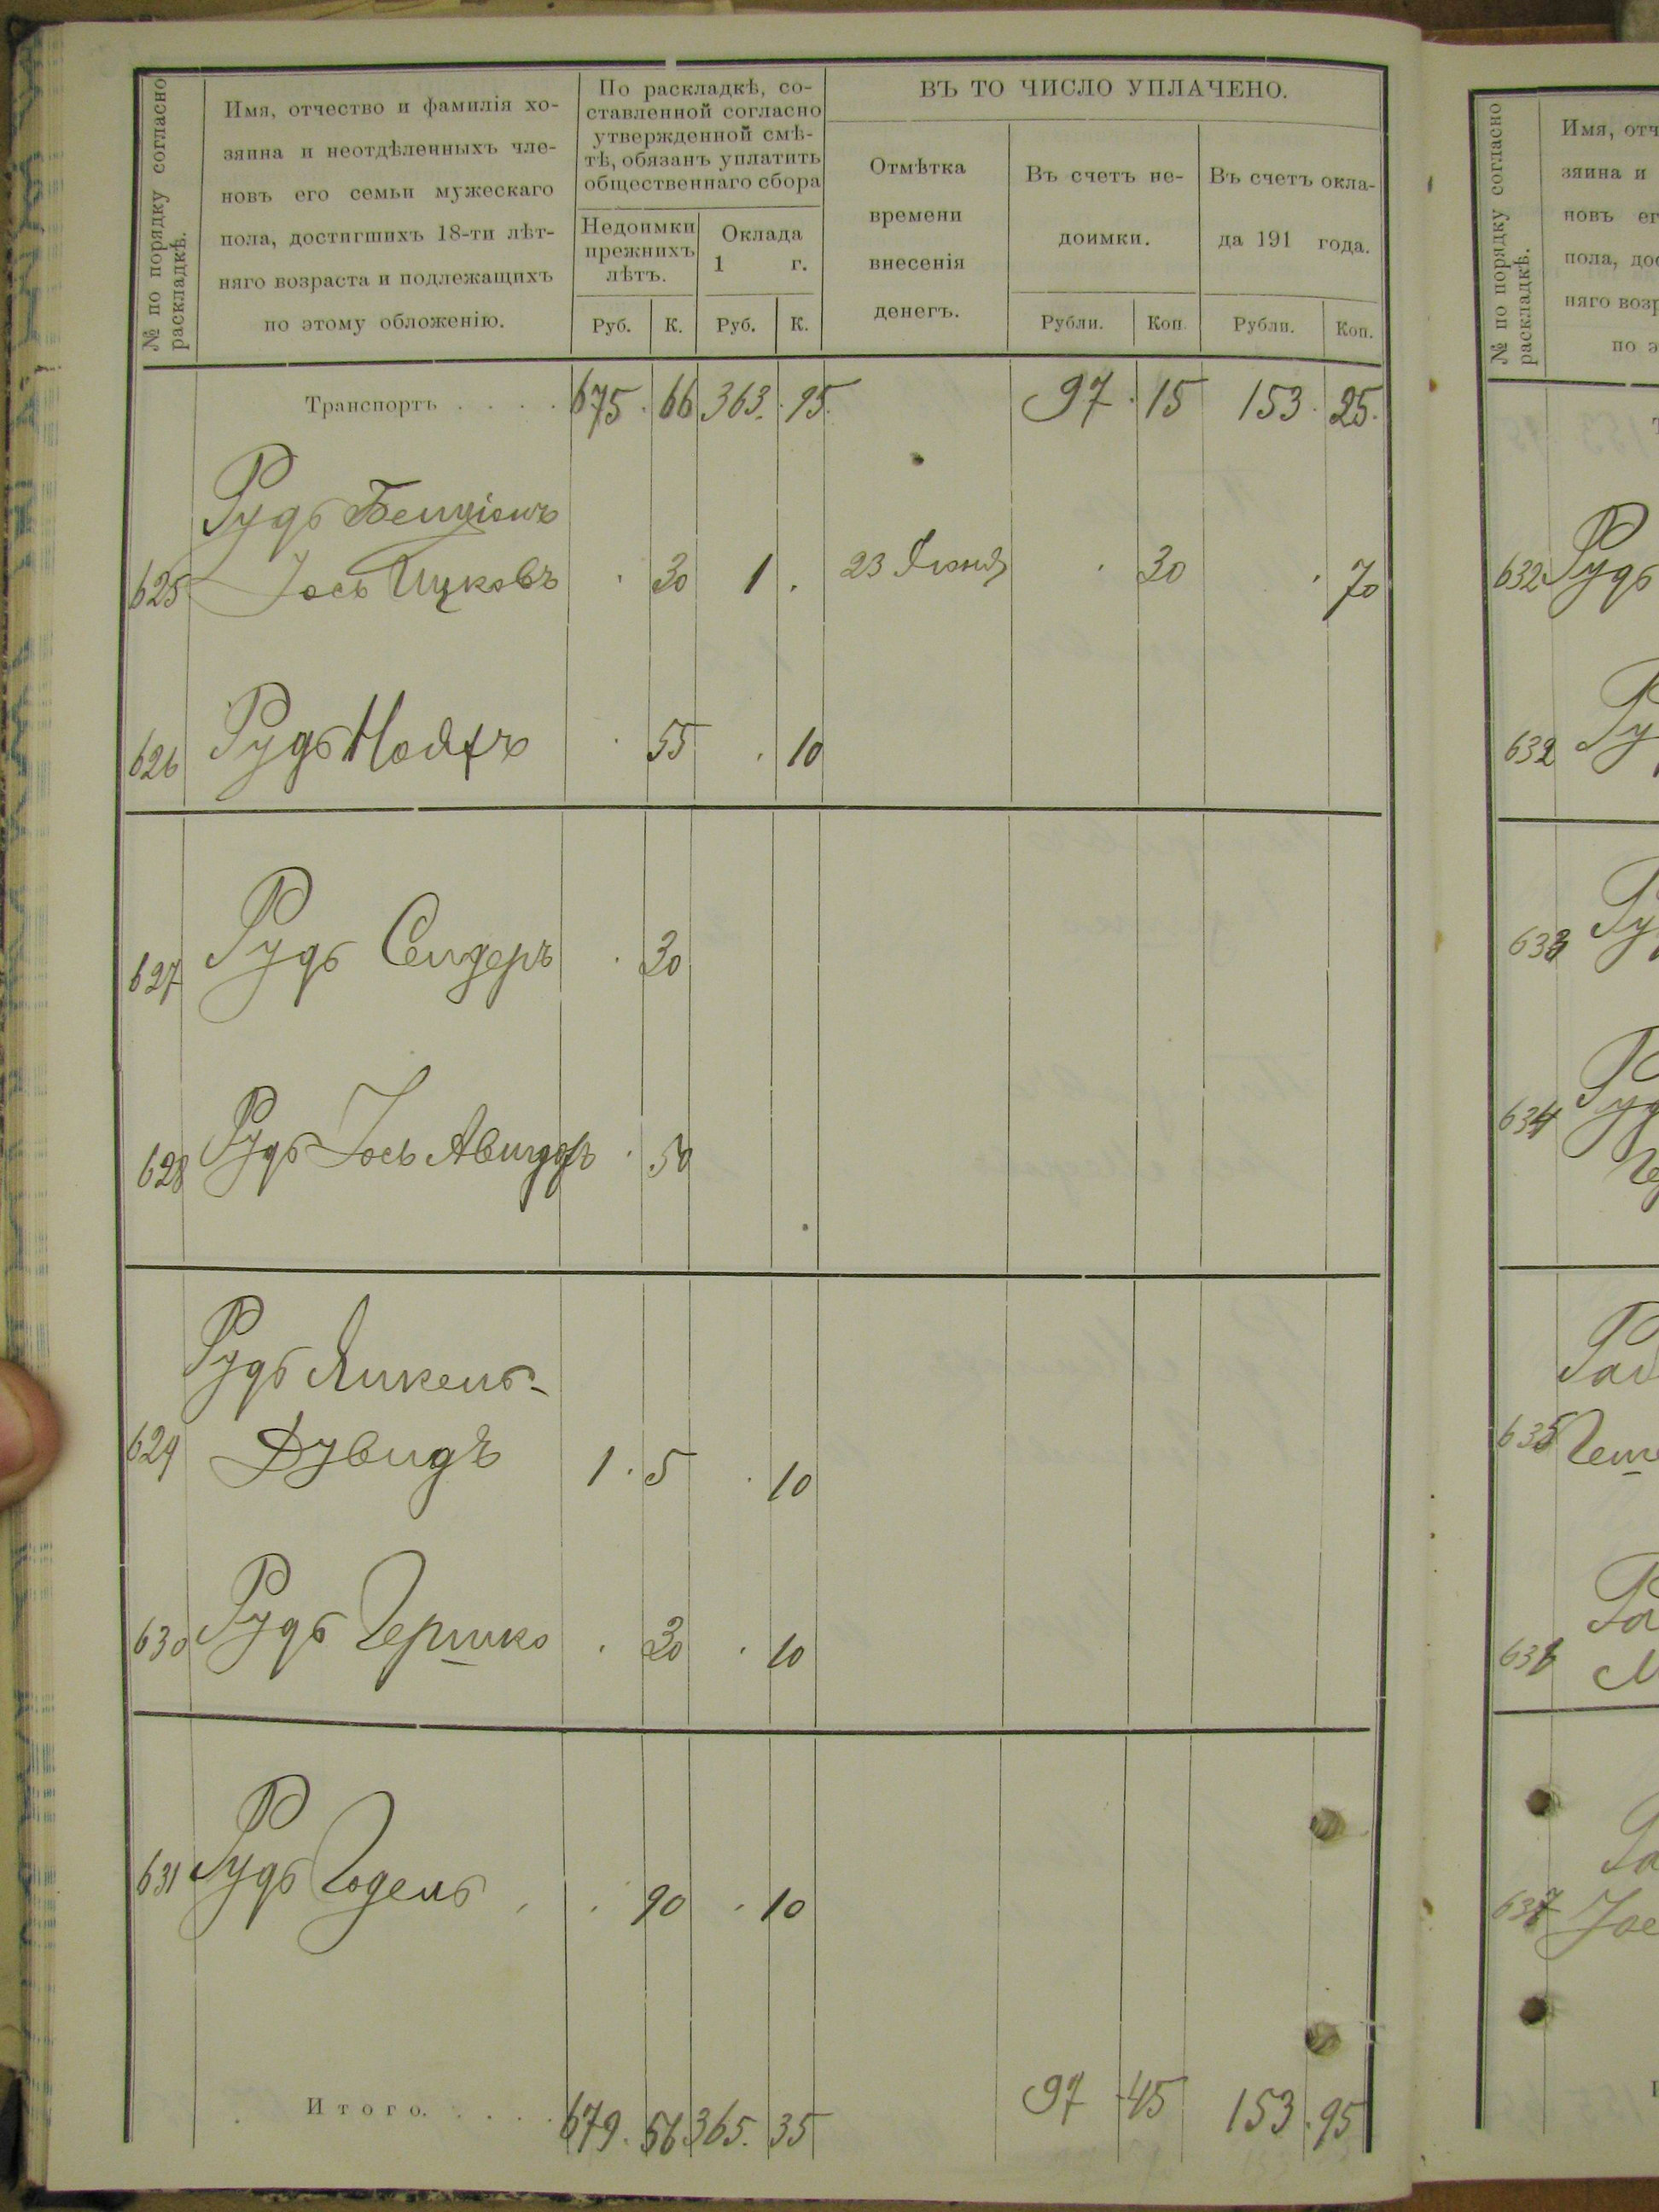 № по порядку согласно
раскладкѣ.
Имя, отчество и фамилія хо-
зяина и неотдѣленныхъ чле-
новъ его семьи мужескаго
пола, достигшихъ 18-ти лѣт-
няго возраста и подлежащихъ
по этому обложенію.
По раскладкѣ, со-
ставленной согласно
утвержденной смѣ-
тѣ, обязанъ уплатить
общественнаго сбора
Недоимки
прежнихъ
лѣтъ.
Оклада
1 г.
Руб. К. Руб. К.
ВЪ ТО ЧИСЛО УПЛАЧЕНО.
Отмѣтка
времени
внесенія
денегъ.
Въ счетъ не-
доимки.
Въ счетъ окла-
да 191 года.
Рубли. Коп. Рубли. Коп.
Транспортъ . . . . 675. 66 363. 95. 97. 15 153. 25.
Рудь Бенціонъ
625 Іось Ицковъ . 30 1 . 23 Іюня . 30 . 70
626 Рудь Ноахъ . 55 . 10
627 Рудь Сендеръ . 30
628 Рудь Іось Авигдоръ . 50
Рудь Янкель-
629 Дувидъ 1. 5 . 10
630 Рудь Гершко . 30 . 10
631 Рудь Годель . . 90 . 10
Итого. . . . . 679. 56 365. 35 97 45 153. 95
№ по порядку согласно
раскладкѣ.
Имя, отч
зяина и
новъ ег
пола, дос
няго возр
по э
632 Рудь
632 Ру
633 Ру
634
635
637 Іос